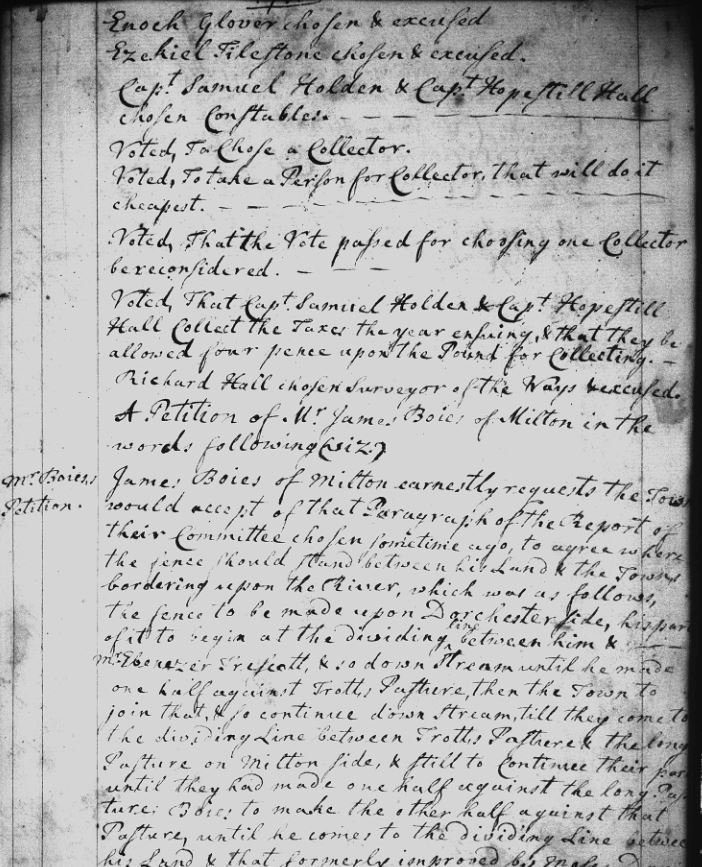 Enoch Glover chosen & excused
Ezekiel Tileſtone chosen & excused.
Capt. Samuel Holden & Capt Hopeſtill Hall
chosen Conſtables.
Voted, To Chose a Collector.
Voted, To take a Perſon for Collector, that will do it
cheapest.
Voted, That the Vote paſsed for chooſing one Collector
be reconſidered.
Voted, That Capt. Samuel Holden & Capt. Hopeſtill
Hall Collect the Taxes the year enſuing, & that they be
allowed four pence upon the Pound for Collecting.
Richard Hall chosen Surveyor of the Ways & excused.
A Petition of Mr. James Boies of Milton in the
words following (viz.)
Mr. Boies's
Petition.
James Boies of Milton earnestly requests the Town
would accept of that Paragraph of the Report of
their Committee chosen ſometime ago, to agree where
the fence ſhould ſtand between his Land & the Towns
bordering upon the River, which was as follows,
the fence to be made upon Dorchester ſide, his part
of it to begin at the dividing line between him &
Mr. Ebenezer Treſcott, & so down Stream until he made
one half against Trotts Paſture, then the Town to
join that, & ſo continue down Stream, till they come to
the dividing Line between Trotts Paſture & the long
Paſture on Milton ſide, & ſtill to Continue their part
until they had made one half against the long Paſ
ture: Boies to make the other half against that
Paſture, until he comes to the dividing Line between
his Land & that formerly improved by